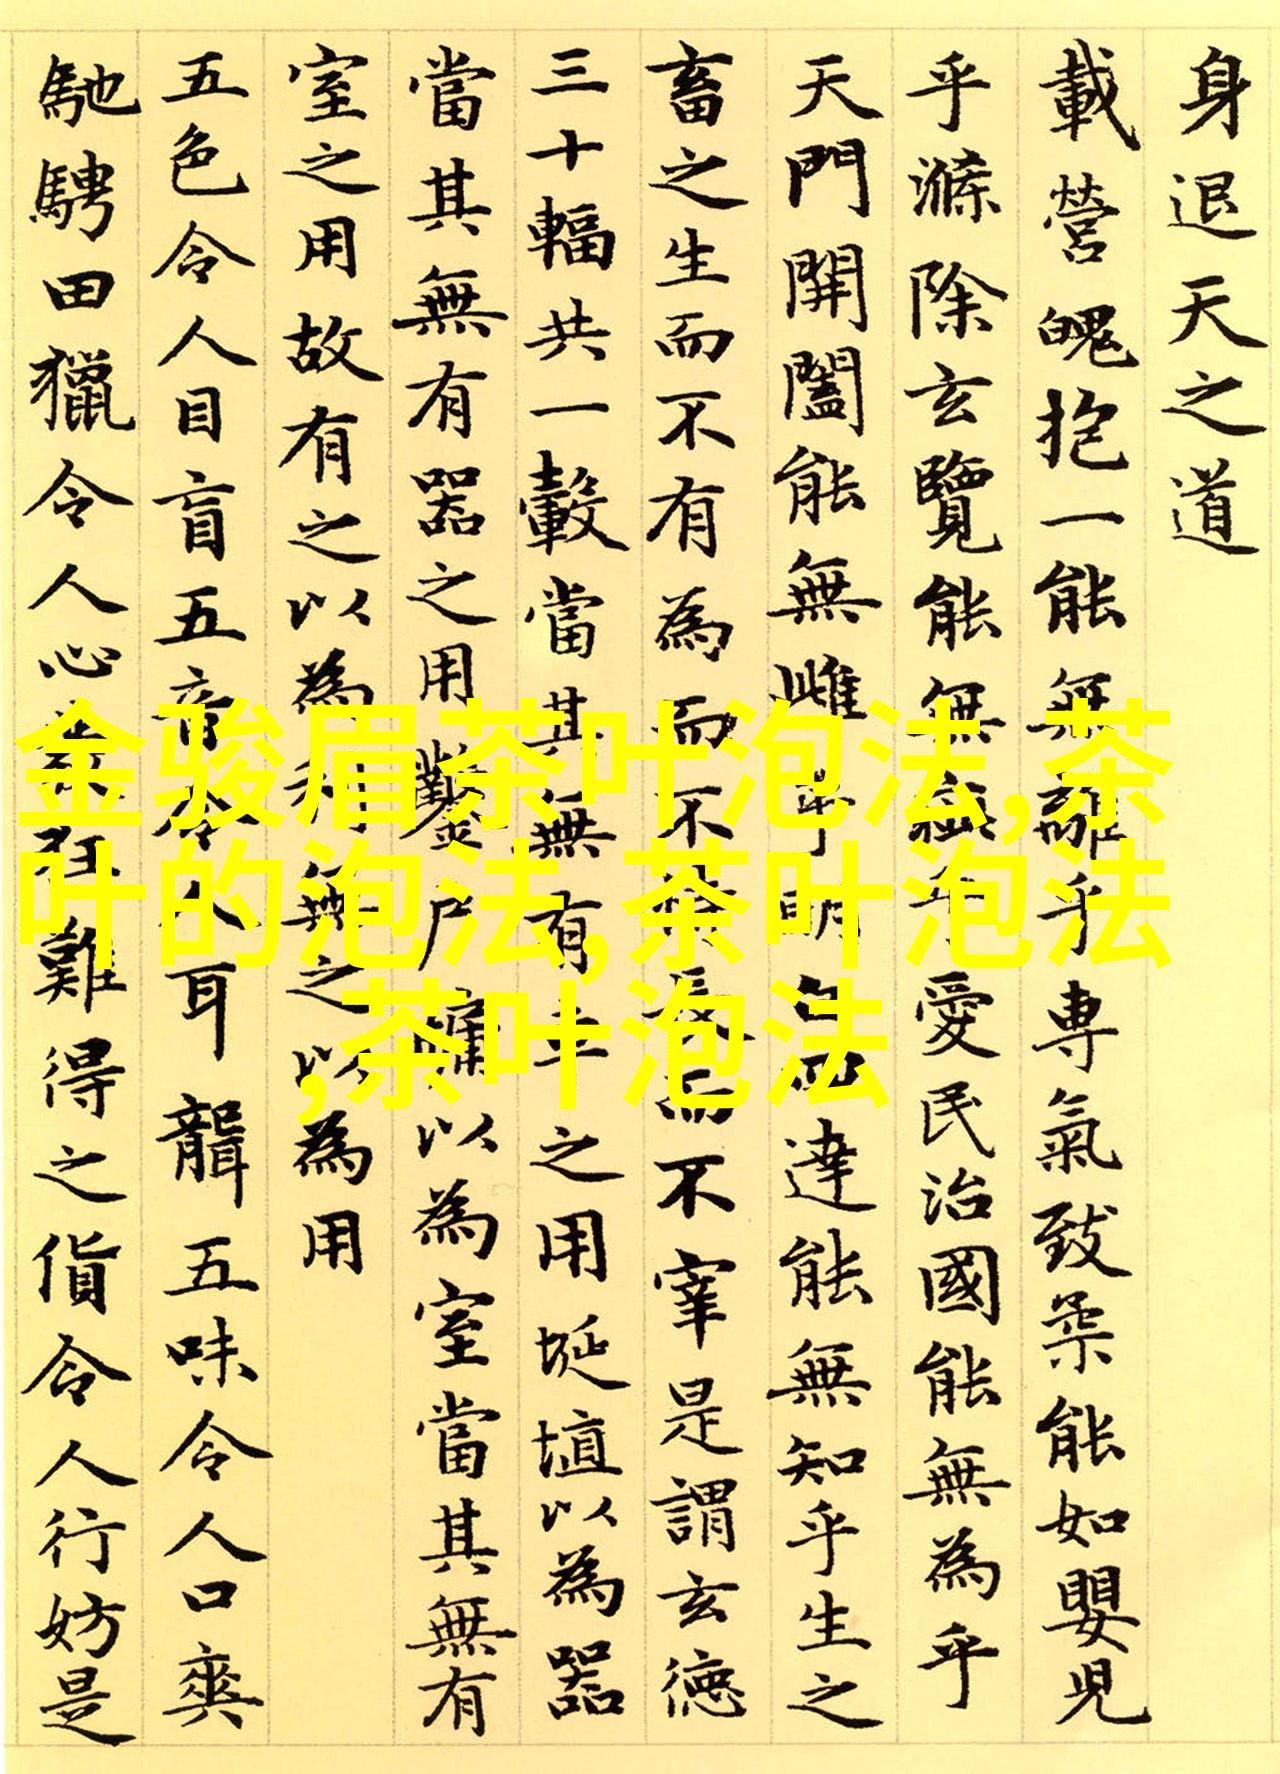 身退天之道
載營魄抱一能無離乎專氣致柔能如嬰兒
乎滌除玄覽能無乎愛民治國能無為乎
天門開闔能無雌乎明白四達能無知乎生之
畜之生而不有為而不恃長而不宰是謂玄德
三十輻共一轂當其無有車之用埏埴以為器
當其無有器之用鑿戶牖以為室當其無有
室之用故有之以為利無之以為用
五色令人目盲五音令人耳聾五味令人口爽
馳騁田獵令人心發狂難得之貨令人行妨是
金骏眉茶叶泡法,茶
叶的泡法,茶叶泡法
,茶叶泡法